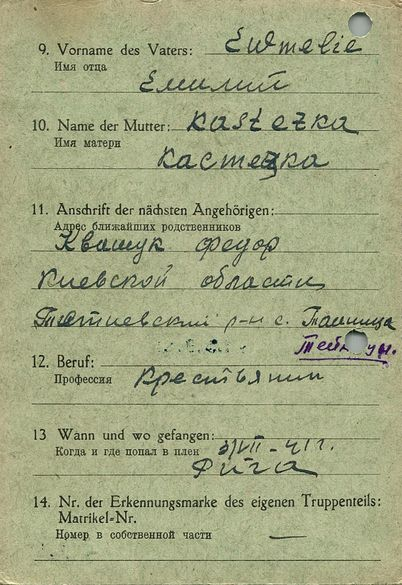 9. Vorname des Vaters: Eumelie
Имя отца
Емилий
10. Name der Mutter: Kastezka
Имя матери
Кастезка
11. Anschrift der nächsten Angehörigen:
Адрес ближайших родственников
Квашук Федор
Киевской области
Тетиевский р-н с. Ташица
12. Beruf:
Профессия крестьянин
13 Wann und wo gefangen:
Когда и где попал в плен
Рига
14. Nr. der Erkennungsmarke des eigenen Truppenteils:
Matrikel-Nr.
Номер в собственной части —